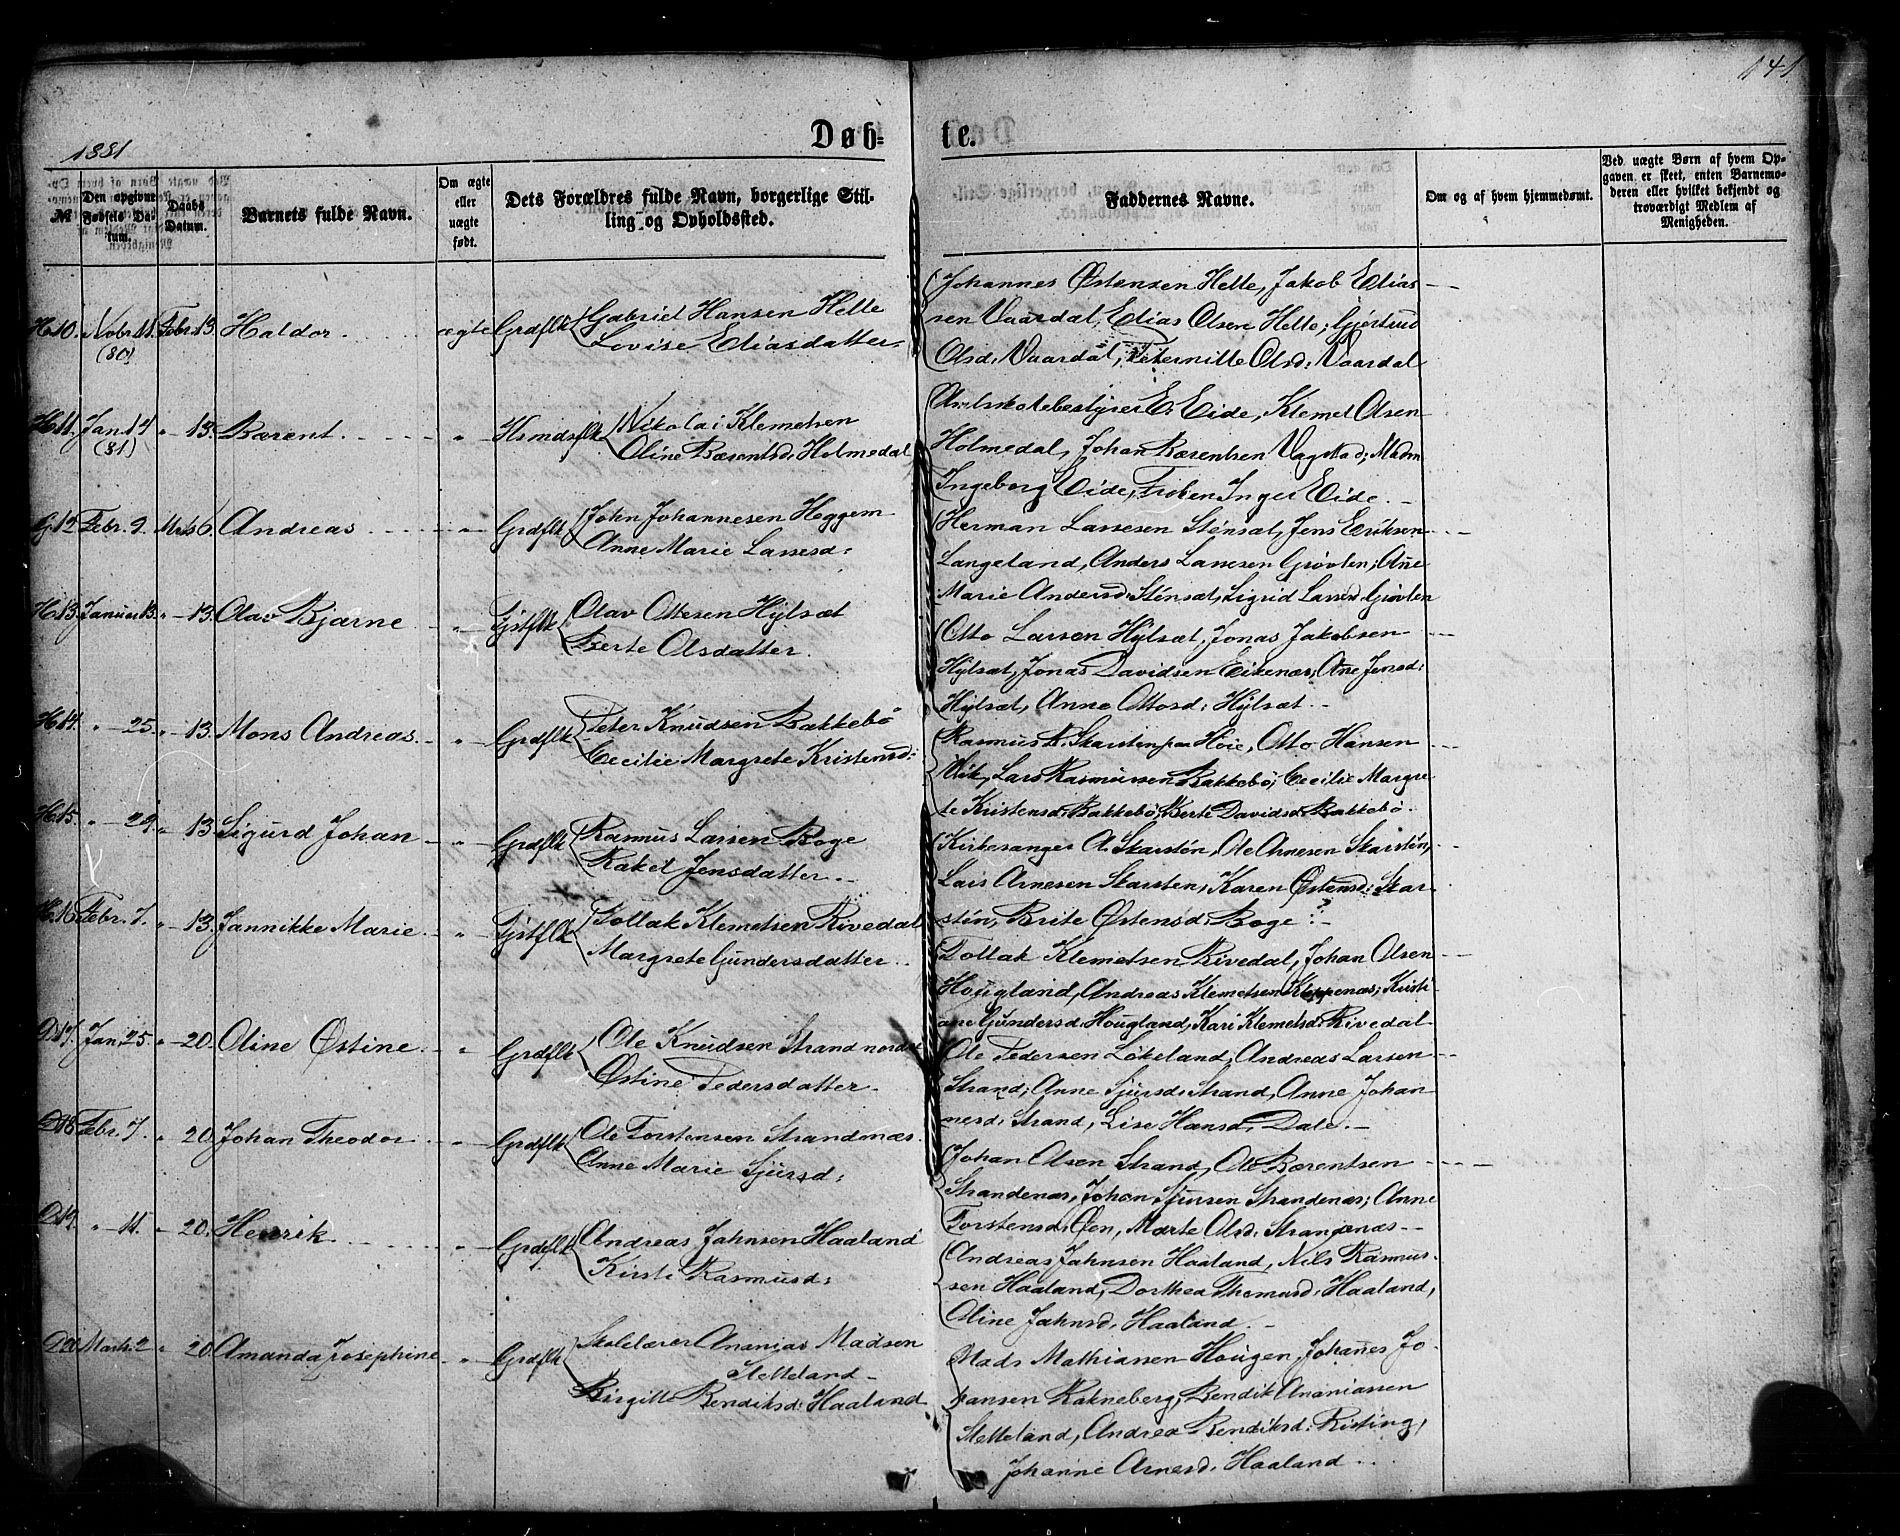 141
1881
Døb-
te.
№
Den opgivne Fødsels Datum.
Daabs Datum.
Barnets fulde Navn.
Om ægte eller uægte født.
Dets Forældres fulde Navn, borgerlige Stilling og Opholdssted.
Faddernes Navne.
Om og af hvem hjemmedøbt.
Ved uægte Børn af hvem Opgaven er skeet, enten Barnemoderen eller hvilket bekjendt og troværdigt Medlem af Menigheden.
H.10. Nobr. 11. (80) Febr. 13. Haldor ægte Grdflk Gabriel Hansen Helle
Lovise Eliasdatter
Johannes Østensen Helle, Jakob Elias
sen Vaardal, Elias Olsen Helle, Gjertrud
Olsd: Vaardal, Peternille Olsd: Vaardal
H.11. Jan. 14 (81) " 13. Bærent " Hsmdsflk Nikolai Klemetsen
Oline Bærentsd: Holmedal
Amtsskolebestyrer E. Eide, Klemet Olsen
Holmedal, Johan Bærentsen Vagstad, Madm
Ingeborg Eide, Frøken Inger Eide.
G.12 Febr. 9. Mrts 6. Andreas " Grdflk John Johannesen Heggem
Anne Marie Lassesd:
Herman Lassesen Stensæt, Jens Eriksen
Langeland, Anders Lassesen Grøvlen, Ane
Marie Andersd: Stensæt, Sigrid Lassesd: Grøvlen
H.13. Januar 13. " 13. Olav Bjarne " Tjstflk Olav Ottesen Hylsæt
Berte Olsdatter.
Otto Larsen Hylsæt, Jonas Jakobsen
Hylsæt, Jonas Davidsen Eikenæs, Ane Jensd:
Hylsæt, Anne Ottosd: Hylsæt.
H.14. " 25. " 13. Mons Andreas. " Grdflk Peter Knudsen Bakkebø
Cecilie Margrete Kristensd:
Rasmus R. Skarsten paa Høie, Otto Hansen
Vik, Lars Rasmussen Bakkebø, Cecilie Margre
te Kristensd: Bakkebø, Berte Davidsd: Bakkebø.
H.15. " 29. " 13. Sigurd Johan " Grdflk Rasmus Larsen Boge
Rakel Jensdatter.
Kirkesanger A. Skarstén, Ole Arnesen Skarstén,
Lars Arnesen Skarsten, Karen Østensd: Skar-
stén, Brite Østensd: Boge
H.16 Febr. 7. " 13. Jannikke Marie " Tjstflk Tollak Klemetsen Rivedal
Margrete Gundersdatter.
Tollak Klemetsen Rivedal, Johan Olsen
Hougland, Andreas Klemetsen Kleppenæs, Kristi
ane Gundersd: Hougland, Kari Klemetsd: Rivedal
D.17. Jan. 25. " 20. Oline Østine " Grdflk Ole Knudsen Strand nordre
Østine Pedersdatter.
Ole Pedersen Løkeland, Andreas Larsen
Strand, Anne Sjursd: Strand, Anne Johan
nesd: Strand, Lise Hansd: Dale.
D.18 Febr. 7. " 20. Johan Theodor " Grdflk Ole Torstensen Strandenæs.
Anne Marie Sjursd:
Johan Olsen Strand, Ole Bærentsen
Strandenæs, Johan Sjursen Strandenæs, Anne
Torstensd: Øen, Marte Olsd: Strandenæs
D.19. " 11. " 20. Henrik " Grdflk Andreas Jahnsen Haaland
Kirsti Rasmusd:
Andreas Jahnsen Haaland, Nils Rasmus-
sen Haaland, Dorthea Thomasd: Haaland,
Oline Jahnsd: Haaland.
D.20 Marts 2 " 20. Amanda Josephine " Grdflk Skolelærer Ananias Madsen
Stelleland
Birgitte Bendiksd: Haaland
Mads Mathiassen Hougen, Johannes Jo
hansen Rakneberg, Bendik Ananiassen
Stelleland, Andrea Bendiksd: Risting,
Johanne Arnesd: Haaland